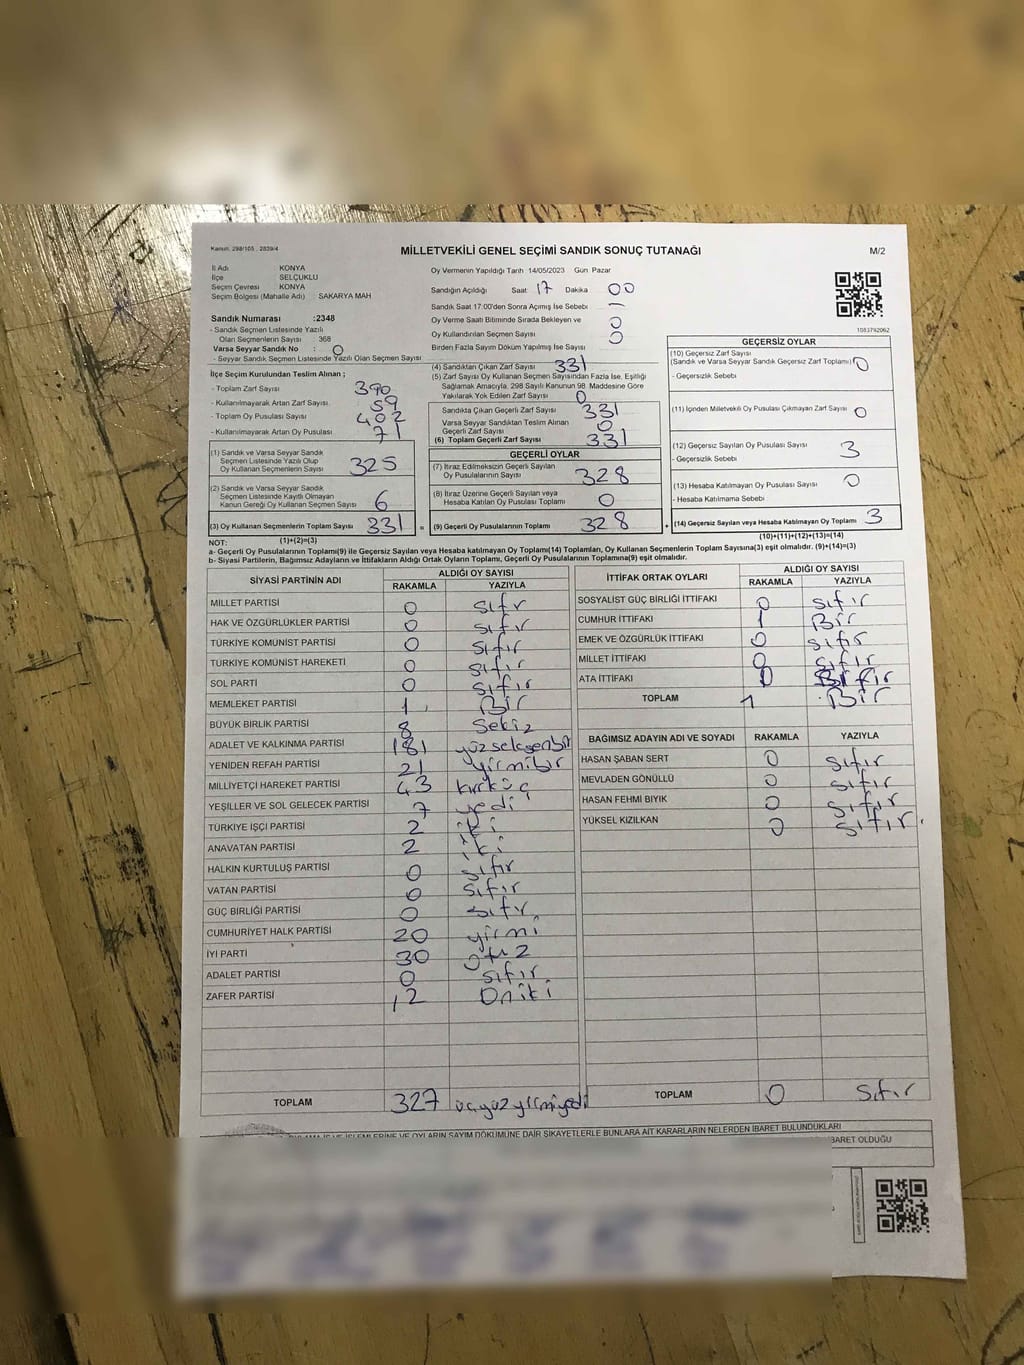 Kanun: 298/105 , 2839/4
MİLLETVEKİLİ GENEL SEÇİMİ SANDIK SONUÇ TUTANAĞI
M/2
İl Adı KONYA
İlçe SELÇUKLU
Seçim Çevresi KONYA
Seçim Bölgesi (Mahalle Adı) : SAKARYA MAH
Sandık Numarası :2348
- Sandık Seçmen Listesinde Yazılı
Olan Seçmenlerin Sayısı : 368
Varsa Seyyar Sandık No : 0
- Seyyar Sandık Seçmen Listesinde Yazılı Olan Seçmen Sayısı
Oy Vermenin Yapıldığı Tarih 14/05/2023 Gün Pazar
Sandığın Açıldığı Saat: 17 Dakika 00
Sandık Saat 17:00'den Sonra Açımış İse Sebebi —
Oy Verme Saati Bitiminde Sırada Bekleyen ve 0
Oy Kullandırılan Seçmen Sayısı 0
Birden Fazla Sayım Döküm Yapılmış İse Sayısı
1083792062
İlçe Seçim Kurulundan Teslim Alınan ;
- Toplam Zarf Sayısı 390
- Kullanılmayarak Artan Zarf Sayısı 59
- Toplam Oy Pusulası Sayısı 402
- Kullanılmayarak Artan Oy Pusulası 71
(1) Sandık ve Varsa Seyyar Sandık
Seçmen Listesinde Yazılı Olup
Oy Kullanan Seçmenlerin Sayısı 325
(2) Sandık ve Varsa Seyyar Sandık
Seçmen Listesinde Kayıtlı Olmayan
Kanun Gereği Oy Kullanan Seçmen Sayısı 6
(3) Oy Kullanan Seçmenlerin Toplam Sayısı 331 =
(4) Sandıktan Çıkan Zarf Sayısı 331
(5) Zarf Sayısı Oy Kullanan Seçmen Sayısından Fazla İse, Eşitliği
Sağlamak Amacıyla, 298 Sayılı Kanunun 98. Maddesine Göre
Yakılarak Yok Edilen Zarf Sayısı 0
Sandıkta Çıkan Geçerli Zarf Sayısı 331
Varsa Seyyar Sandıktan Teslim Alınan
Geçerli Zarf Sayısı 0
(6) Toplam Geçerli Zarf Sayısı 331
GEÇERLİ OYLAR
(7) İtiraz Edilmeksizin Geçerli Sayılan
Oy Pusulalarının Sayısı 328
(8) İtiraz Üzerine Geçerli Sayılan veya
Hesaba Katılan Oy Pusulası Toplamı 0
(9) Geçerli Oy Pusulalarının Toplamı 328 +
GEÇERSİZ OYLAR
(10) Geçersiz Zarf Sayısı
(Sandık ve Varsa Seyyar Sandık Geçersiz Zarf Toplamı) 0
- Geçersizlik Sebebi
(11) İçinden Milletvekili Oy Pusulası Çıkmayan Zarf Sayısı 0
(12) Geçersiz Sayılan Oy Pusulası Sayısı 3
- Geçersizlik Sebebi
(13) Hesaba Katılmayan Oy Pusulası Sayısı 0
- Hesaba Katılmama Sebebi
(14) Geçersiz Sayılan veya Hesaba Katılmayan Oy Toplamı 3
NOT: (1)+(2)=(3)
(10)+(11)+(12)+(13)=(14)
a- Geçerli Oy Pusulalarının Toplamı(9) ile Geçersiz Sayılan veya Hesaba katılmayan Oy Toplamı(14) Toplamları, Oy Kullanan Seçmenlerin Toplam Sayısına(3) eşit olmalıdır. (9)+(14)=(3)
b- Siyasi Partilerin, Bağımsız Adayların ve İttifakların Aldığı Ortak Oyların Toplamı, Geçerli Oy Pusulalarının Toplamına(9) eşit olmalıdır.
SİYASİ PARTİNİN ADI ALDIĞI OY SAYISI
RAKAMLA YAZIYLA
MİLLET PARTİSİ 0 sıfır
HAK VE ÖZGÜRLÜKLER PARTİSİ 0 sıfır
TÜRKİYE KOMÜNİST PARTİSİ 0 sıfır
TÜRKİYE KOMÜNİST HAREKETİ 0 sıfır
SOL PARTİ 0 sıfır
MEMLEKET PARTİSİ 1 Bir
BÜYÜK BİRLİK PARTİSİ 8 Sekiz
ADALET VE KALKINMA PARTİSİ 181 yüzseksenbir
YENİDEN REFAH PARTİSİ 21 yirmibir
MİLLİYETÇİ HAREKET PARTİSİ 43 kırküç
YEŞİLLER VE SOL GELECEK PARTİSİ 7 yedi
TÜRKİYE İŞÇİ PARTİSİ 2 iki
ANAVATAN PARTİSİ 2 iki
HALKIN KURTULUŞ PARTİSİ 0 sıfır
VATAN PARTİSİ 0 sıfır
GÜÇ BİRLİĞİ PARTİSİ 0 sıfır
CUMHURİYET HALK PARTİSİ 20 yirmi
İYİ PARTİ 30 otuz
ADALET PARTİSİ 0 sıfır
ZAFER PARTİSİ 12 Oniki
TOPLAM 327 üçyüzyirmiyedi
İTTİFAK ORTAK OYLARI ALDIĞI OY SAYISI
RAKAMLA YAZIYLA
SOSYALİST GÜÇ BİRLİĞİ İTTİFAKI 0 sıfır
CUMHUR İTTİFAKI 1 Bir
EMEK VE ÖZGÜRLÜK İTTİFAKI 0 sıfır
MİLLET İTTİFAKI 0 sıfır
ATA İTTİFAKI
TOPLAM 1 Bir
BAĞIMSIZ ADAYIN ADI VE SOYADI RAKAMLA YAZIYLA
HASAN ŞABAN SERT 0 sıfır
MEVLADEN GÖNÜLLÜ 0 sıfır
HASAN FEHMİ BIYIK 0 sıfır
YÜKSEL KIZILKAN 0 sıfır
TOPLAM 0 sıfır
İŞLEMLERİNE VE OYLARIN SAYIM DÖKÜMÜNE DAİR ŞİKAYETLERLE BUNLARA AİT KARARLARIN NELERDEN İBARET BULUNDUKLARI
İBARET OLDUĞU